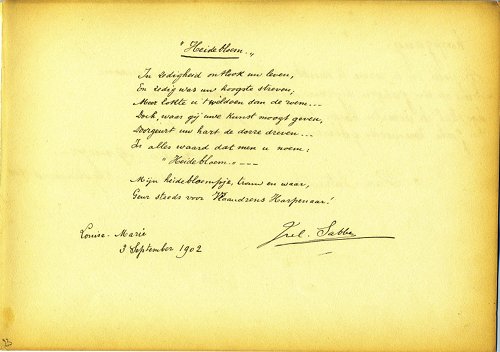 "Heidebloem."
In zedigheid ontlook uw leven,
En zedig was uw hoogste streven,
Meer lokte u 't weldoen dan de roem...
Doch, waar gij uwe kunst moogt geven,
Doorgeurt uw hart de dorre dreven...
In alles waard dat men u noem:
"Heidebloem." ---
Mijn heidebloempje, trouw en waar,
Geur steeds voor Vlaandrens Harpenaar!
Louisa-Marie
3 September 1902
Jul. Sabbe